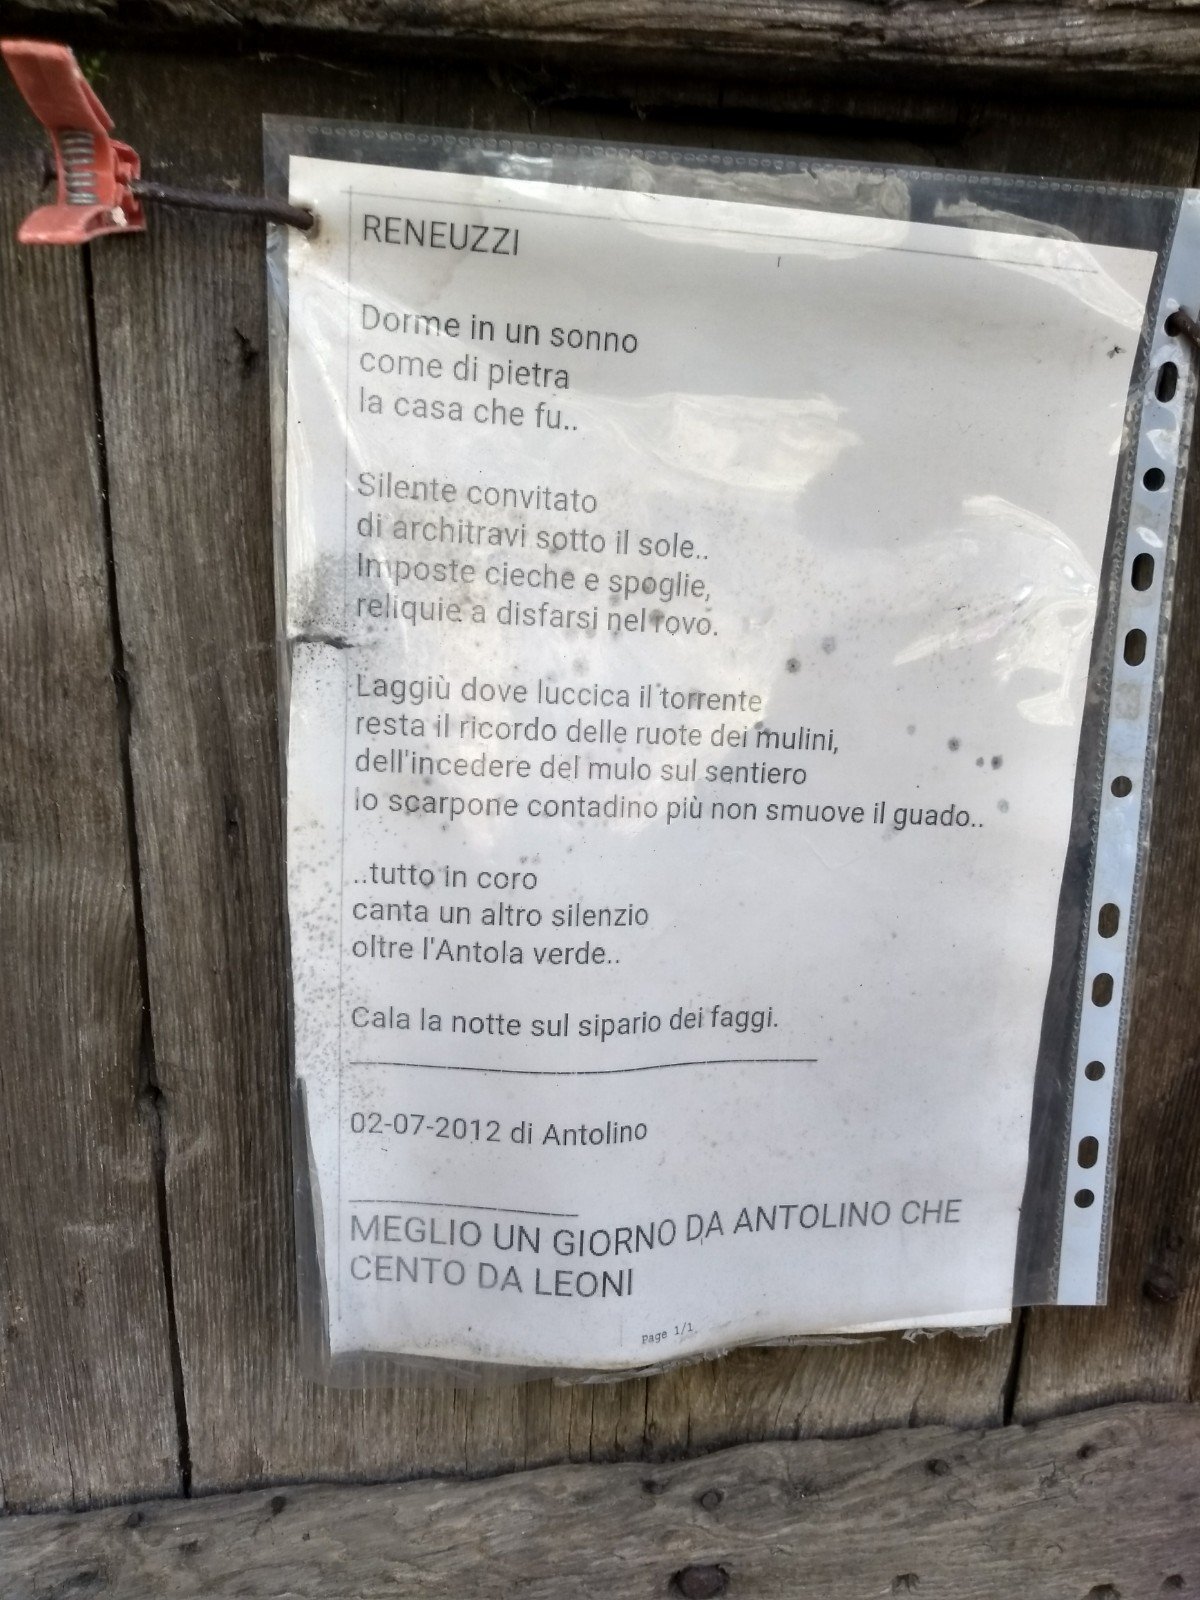 RENEUZZI
Dorme in un sonno
come di pietra
la casa che fu..
Silente convitato
di architravi sotto il sole..
Imposte cieche e spoglie,
reliquie a disfarsi nel rovo.
Laggiù dove luccica il torrente
resta il ricordo delle ruote dei mulini,
dell'incedere del mulo sul sentiero
lo scarpone contadino più non smuove il guado..
..tutto in coro
canta un altro silenzio
oltre l'Antola verde..
Cala la notte sul sipario dei faggi.
02-07-2012 di Antolino
MEGLIO UN GIORNO DA ANTOLINO CHE
CENTO DA LEONI
Page 1/1